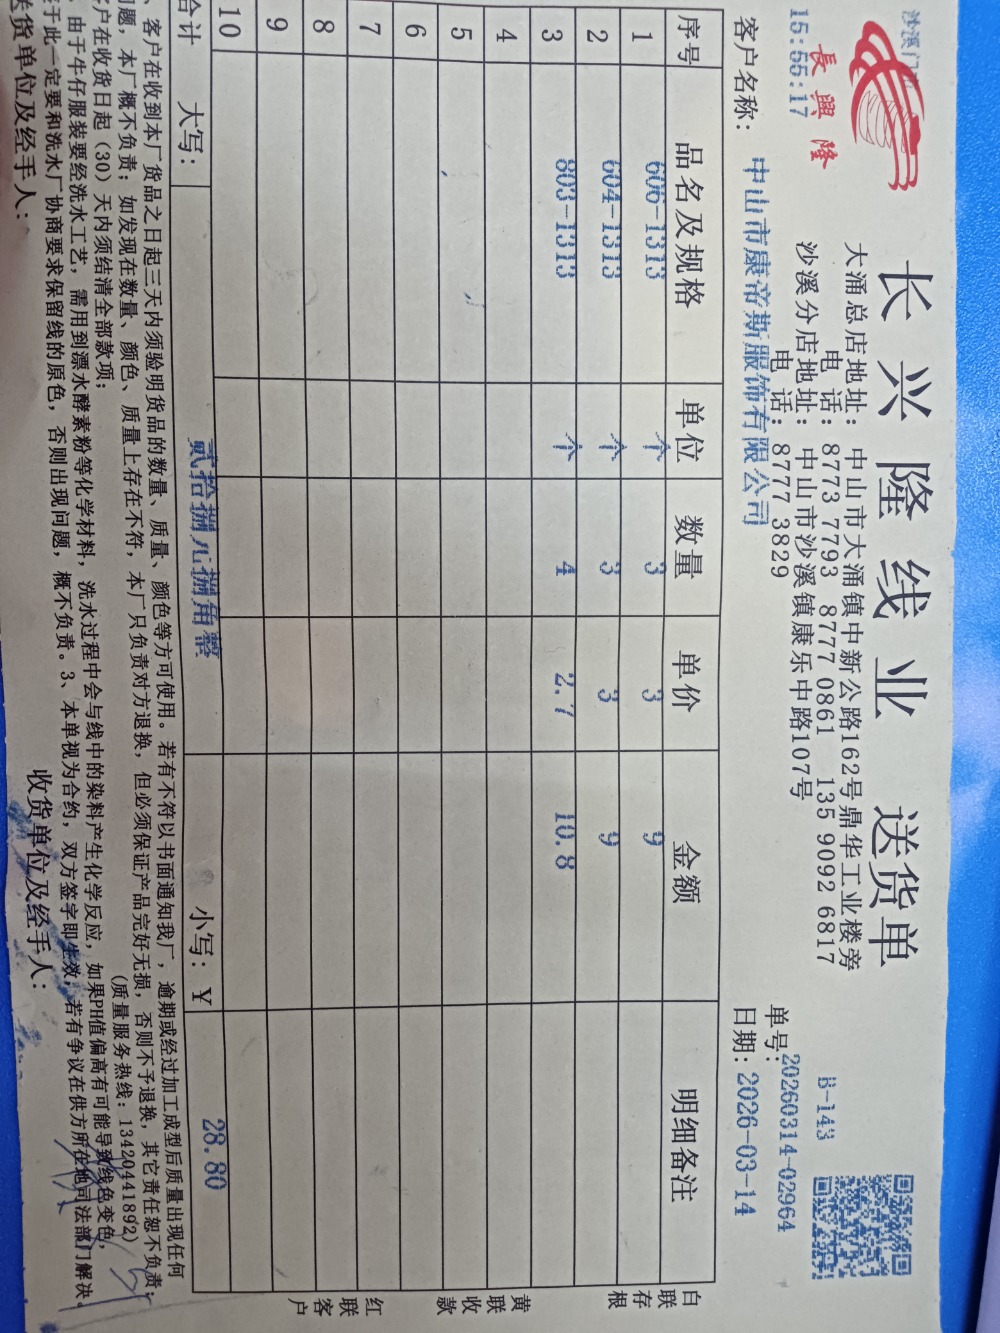 長興隆
沙溪门
15:55:17
长兴隆线业 送货单
大涌总店地址: 中山市大涌镇中新公路162号鼎华工业楼旁
电 话: 8773 7793 8777 0861 135 9092 6817
沙溪分店地址: 中山市沙溪镇康乐中路107号
电 话: 8777 3829
B-143
单号: 20260314-02964
客户名称: 中山市康帝斯服饰有限公司
日期: 2026-03-14
序号 品名及规格 单位 数量 单价 金额 明细备注
1 606-1313 个 3 3 9
2 604-1313 个 3 3 9
3 803-1313 个 4 2.7 10.8
4
5
6
7
8
9
10
合计 大写: 贰拾捌元捌角整 小写: ¥ 28.80
白联存根
黄联收款
红联客户
、客户在收到本厂货品之日起三天内须验明货品的数量、质量、颜色等方可使用。若有不符以书面通知我厂,逾期或经过加工成型后质量出现任何
问题,本厂概不负责;如发现在数量、颜色、质量上存在不符,本厂只负责对方退换,但必须保证产品完好无损,否则不予退换,其它责任恕不负责;
客户在收货日起(30)天内须结清全部款项; (质量服务热线:13420441892)
、由于牛仔服装要经洗水工艺,需用到漂水酵素粉等化学材料,洗水过程中会与线中的染料产生化学反应,如果PH值偏高有可能导致线色变色,
于此一定要和洗水厂协商要求保留线的原色,否则出现问题,概不负责。3、本单视为合约,双方签字即生效,若有争议在供方所在地司法部门解决。
送货单位及经手人: 收货单位及经手人: